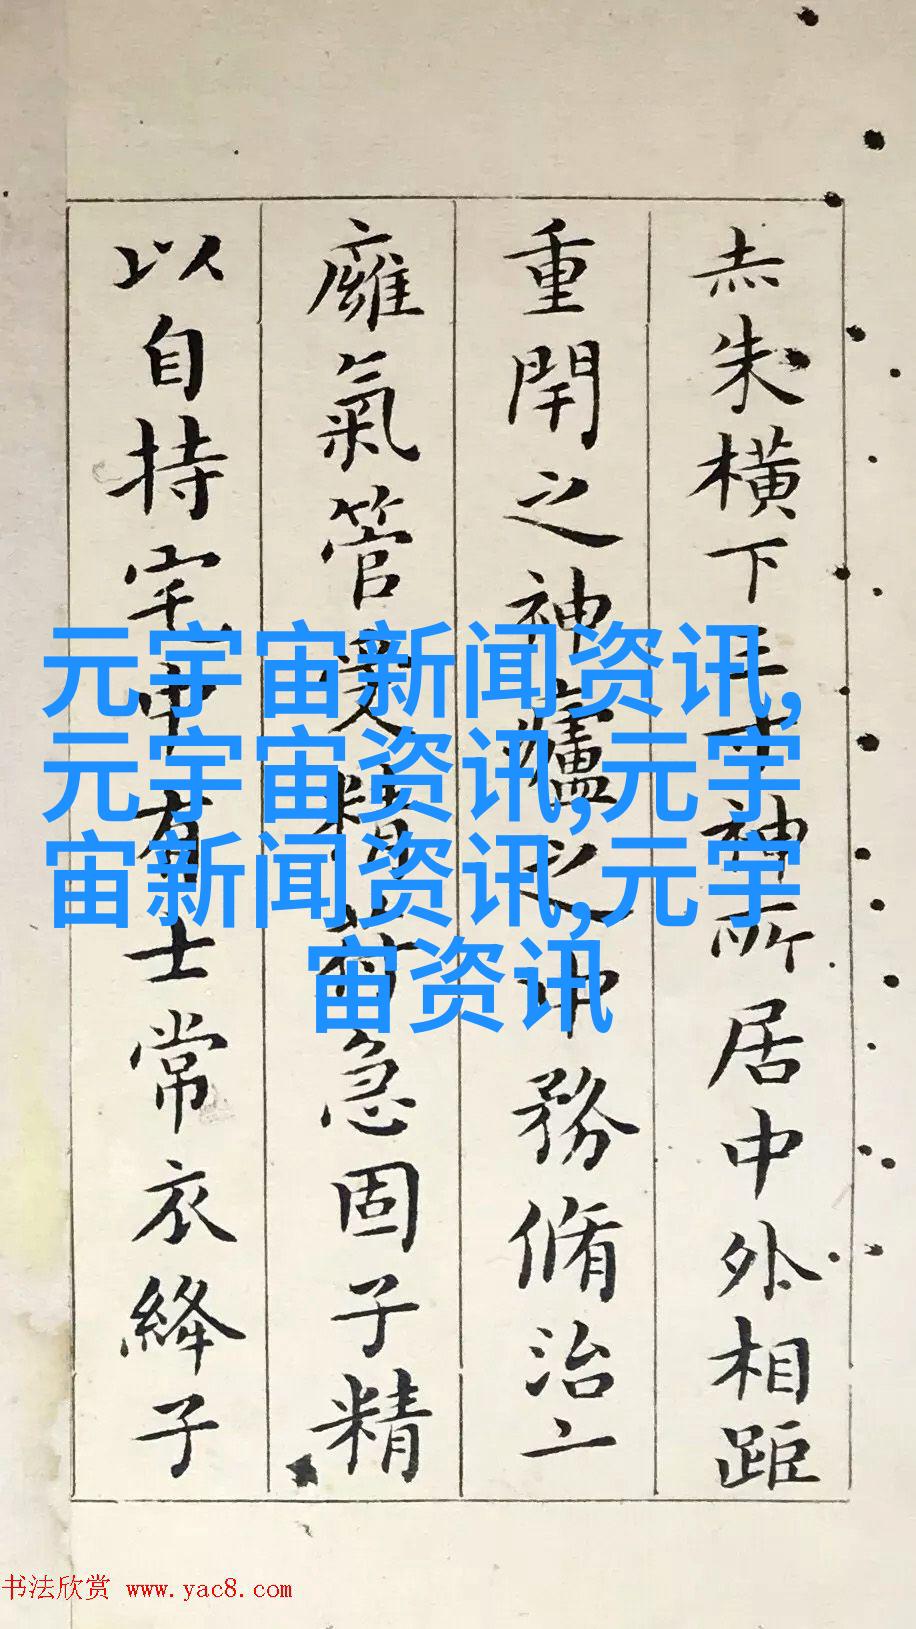 赤朱橫下三寸神所居中外相距
重閇之神廬之中務脩治
癰氣管受精符急固子精
以自持宅中有士常衣絳子
元宇宙新闻资讯,
元宇宙资讯,元宇
宙新闻资讯,元宇
宙资讯
书法欣赏 www.yac8.com